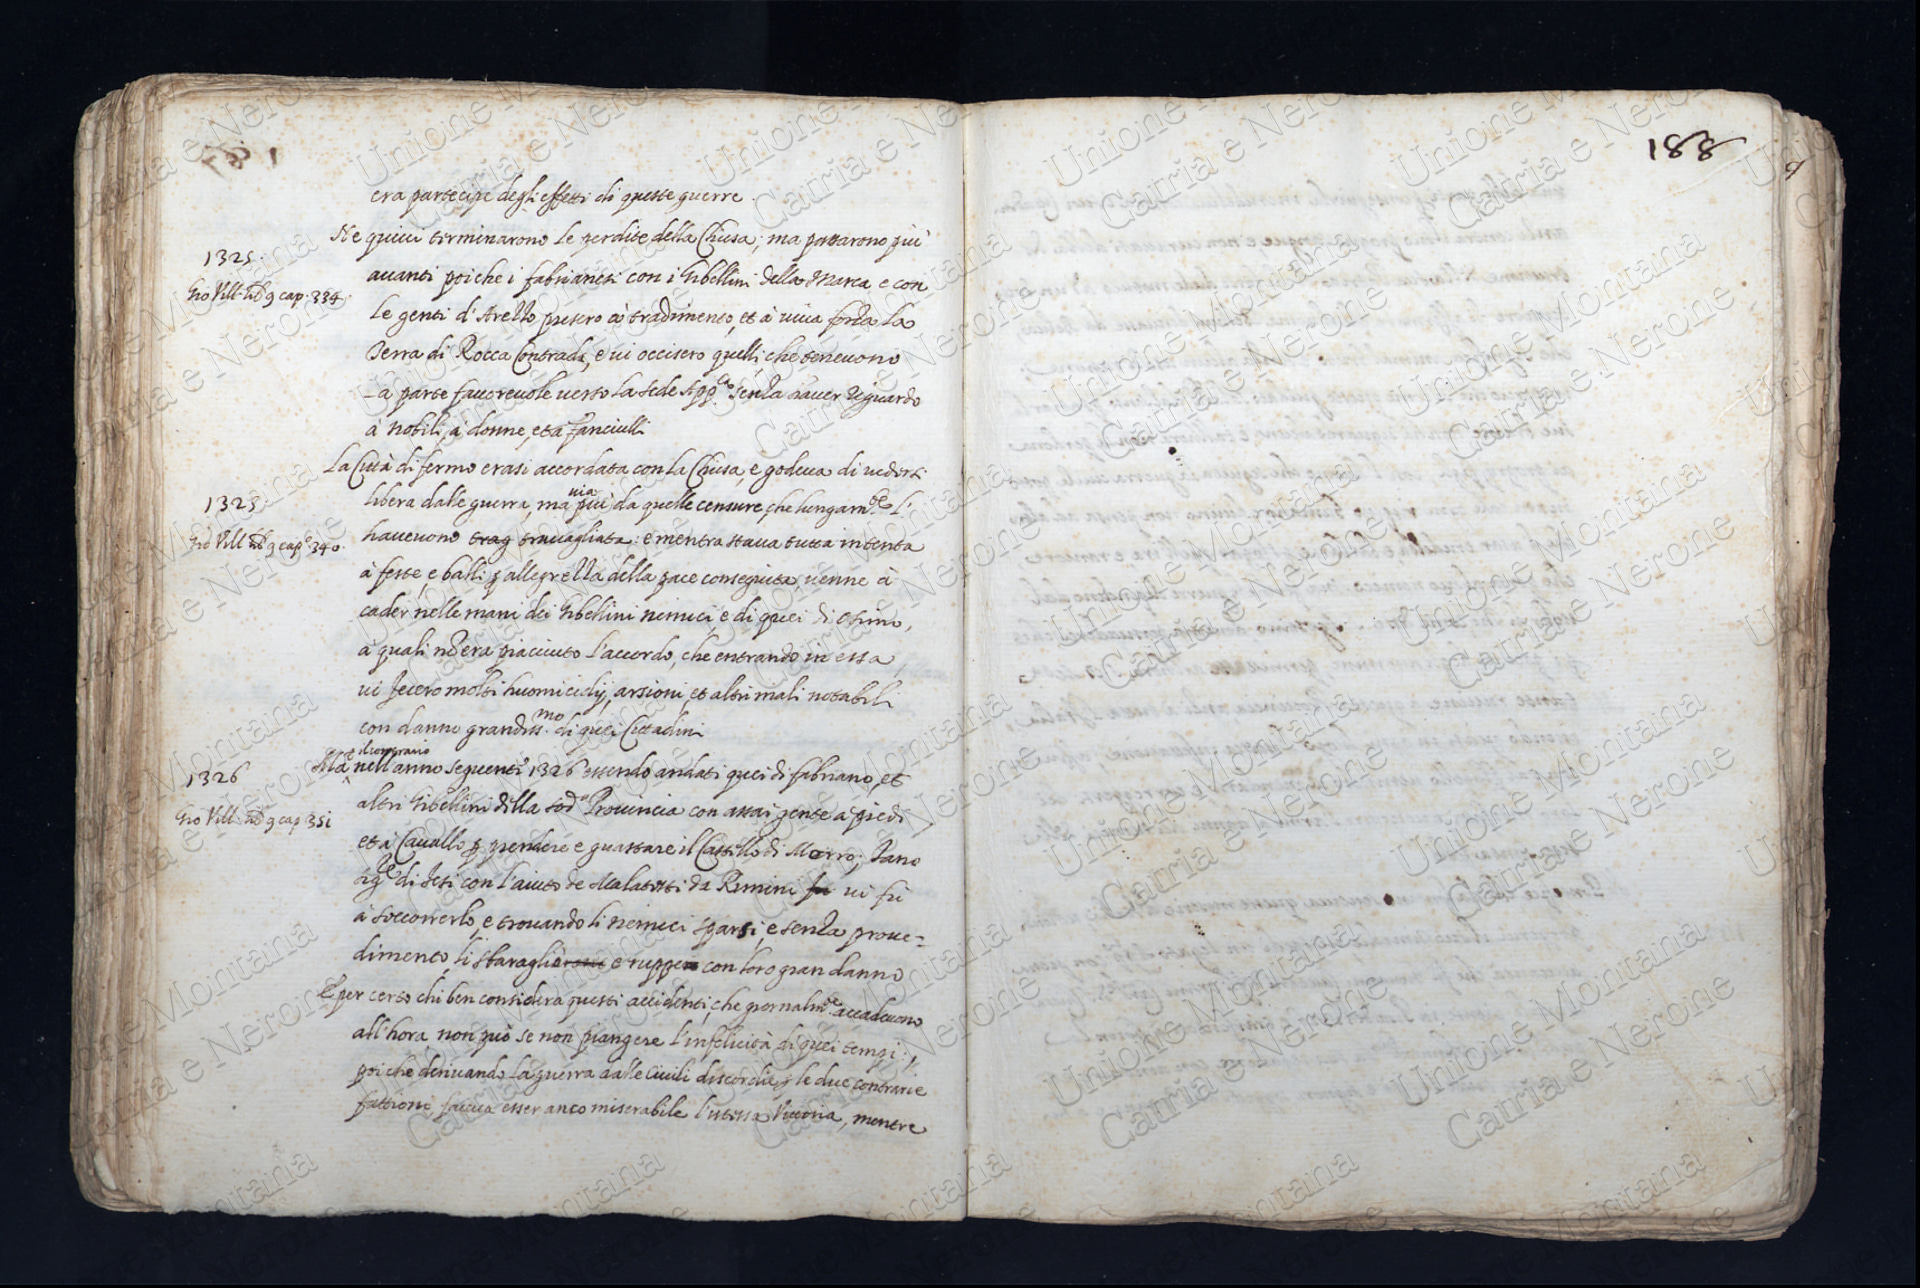 era partecipe degli effetti di queste guerre.
Ne quivi terminarono le perdite della Chiesa; ma passarono più
1325.
Gio Vill. lib 9 cap. 334.
avanti poiche i fabrianesi con i Gibellini della Marca e con
le genti d'Arezzo presero à tradimento, et à viva forza la
Terra di Rocca Contrada, e vi occisero quelli, che tenevono
la parte favorevole verso la Sede App.ca senza haver riguardo
à nobili, à donne, et à fanciulli
La Città di fermo erasi accordata con la Chiesa, e godeva di vedersi
libera dalle guerra, ma via più da quelle censure, che lungam.te l'
1325
Gio Vill lib 9 cap.o 340.
havevono trag travagliata: e mentra stava tutta intenta
à feste, e balli p allegrezza della pace conseguita venne à
cader nelle mani dei Gibellini nemici, e di quei di Osimo,
à quali nō era piaciuto l'accordo, che entrando in essa
vi fecero molti huomicidij, arsioni, et altri mali notabili
con danno grandiss.mo di quei Cittadini
il contrario
1326
Gio Vill lib 9 cap 351
nell'anno seguente 1326 essendo andati quei di fabriano, et
altri Gibellini della sod.a Provincia con assai gente à piedi
et à Cavallo p prendere e guastare il Castello di Morro; Tano
sig.re di Jesi con l'aiuto de Malatesti da Rimini fu vi fù
à soccorrerlo, e trovando li nemici sparsi, e senza prove=
dimento, li sbaragliò e ruppe con loro gran danno
E per certo chi ben considera questi accidenti, che giornalm.te accadevono
all'hora non può se non piangere l'infelicità di quei tempi;,
poiche derivando la guerra dalle civili discordie, p le due contrarie
fattioni, faceva esser anco miserabile l'istessa Vittoria, mentre
188
Unione Montana
Catria e Nerone